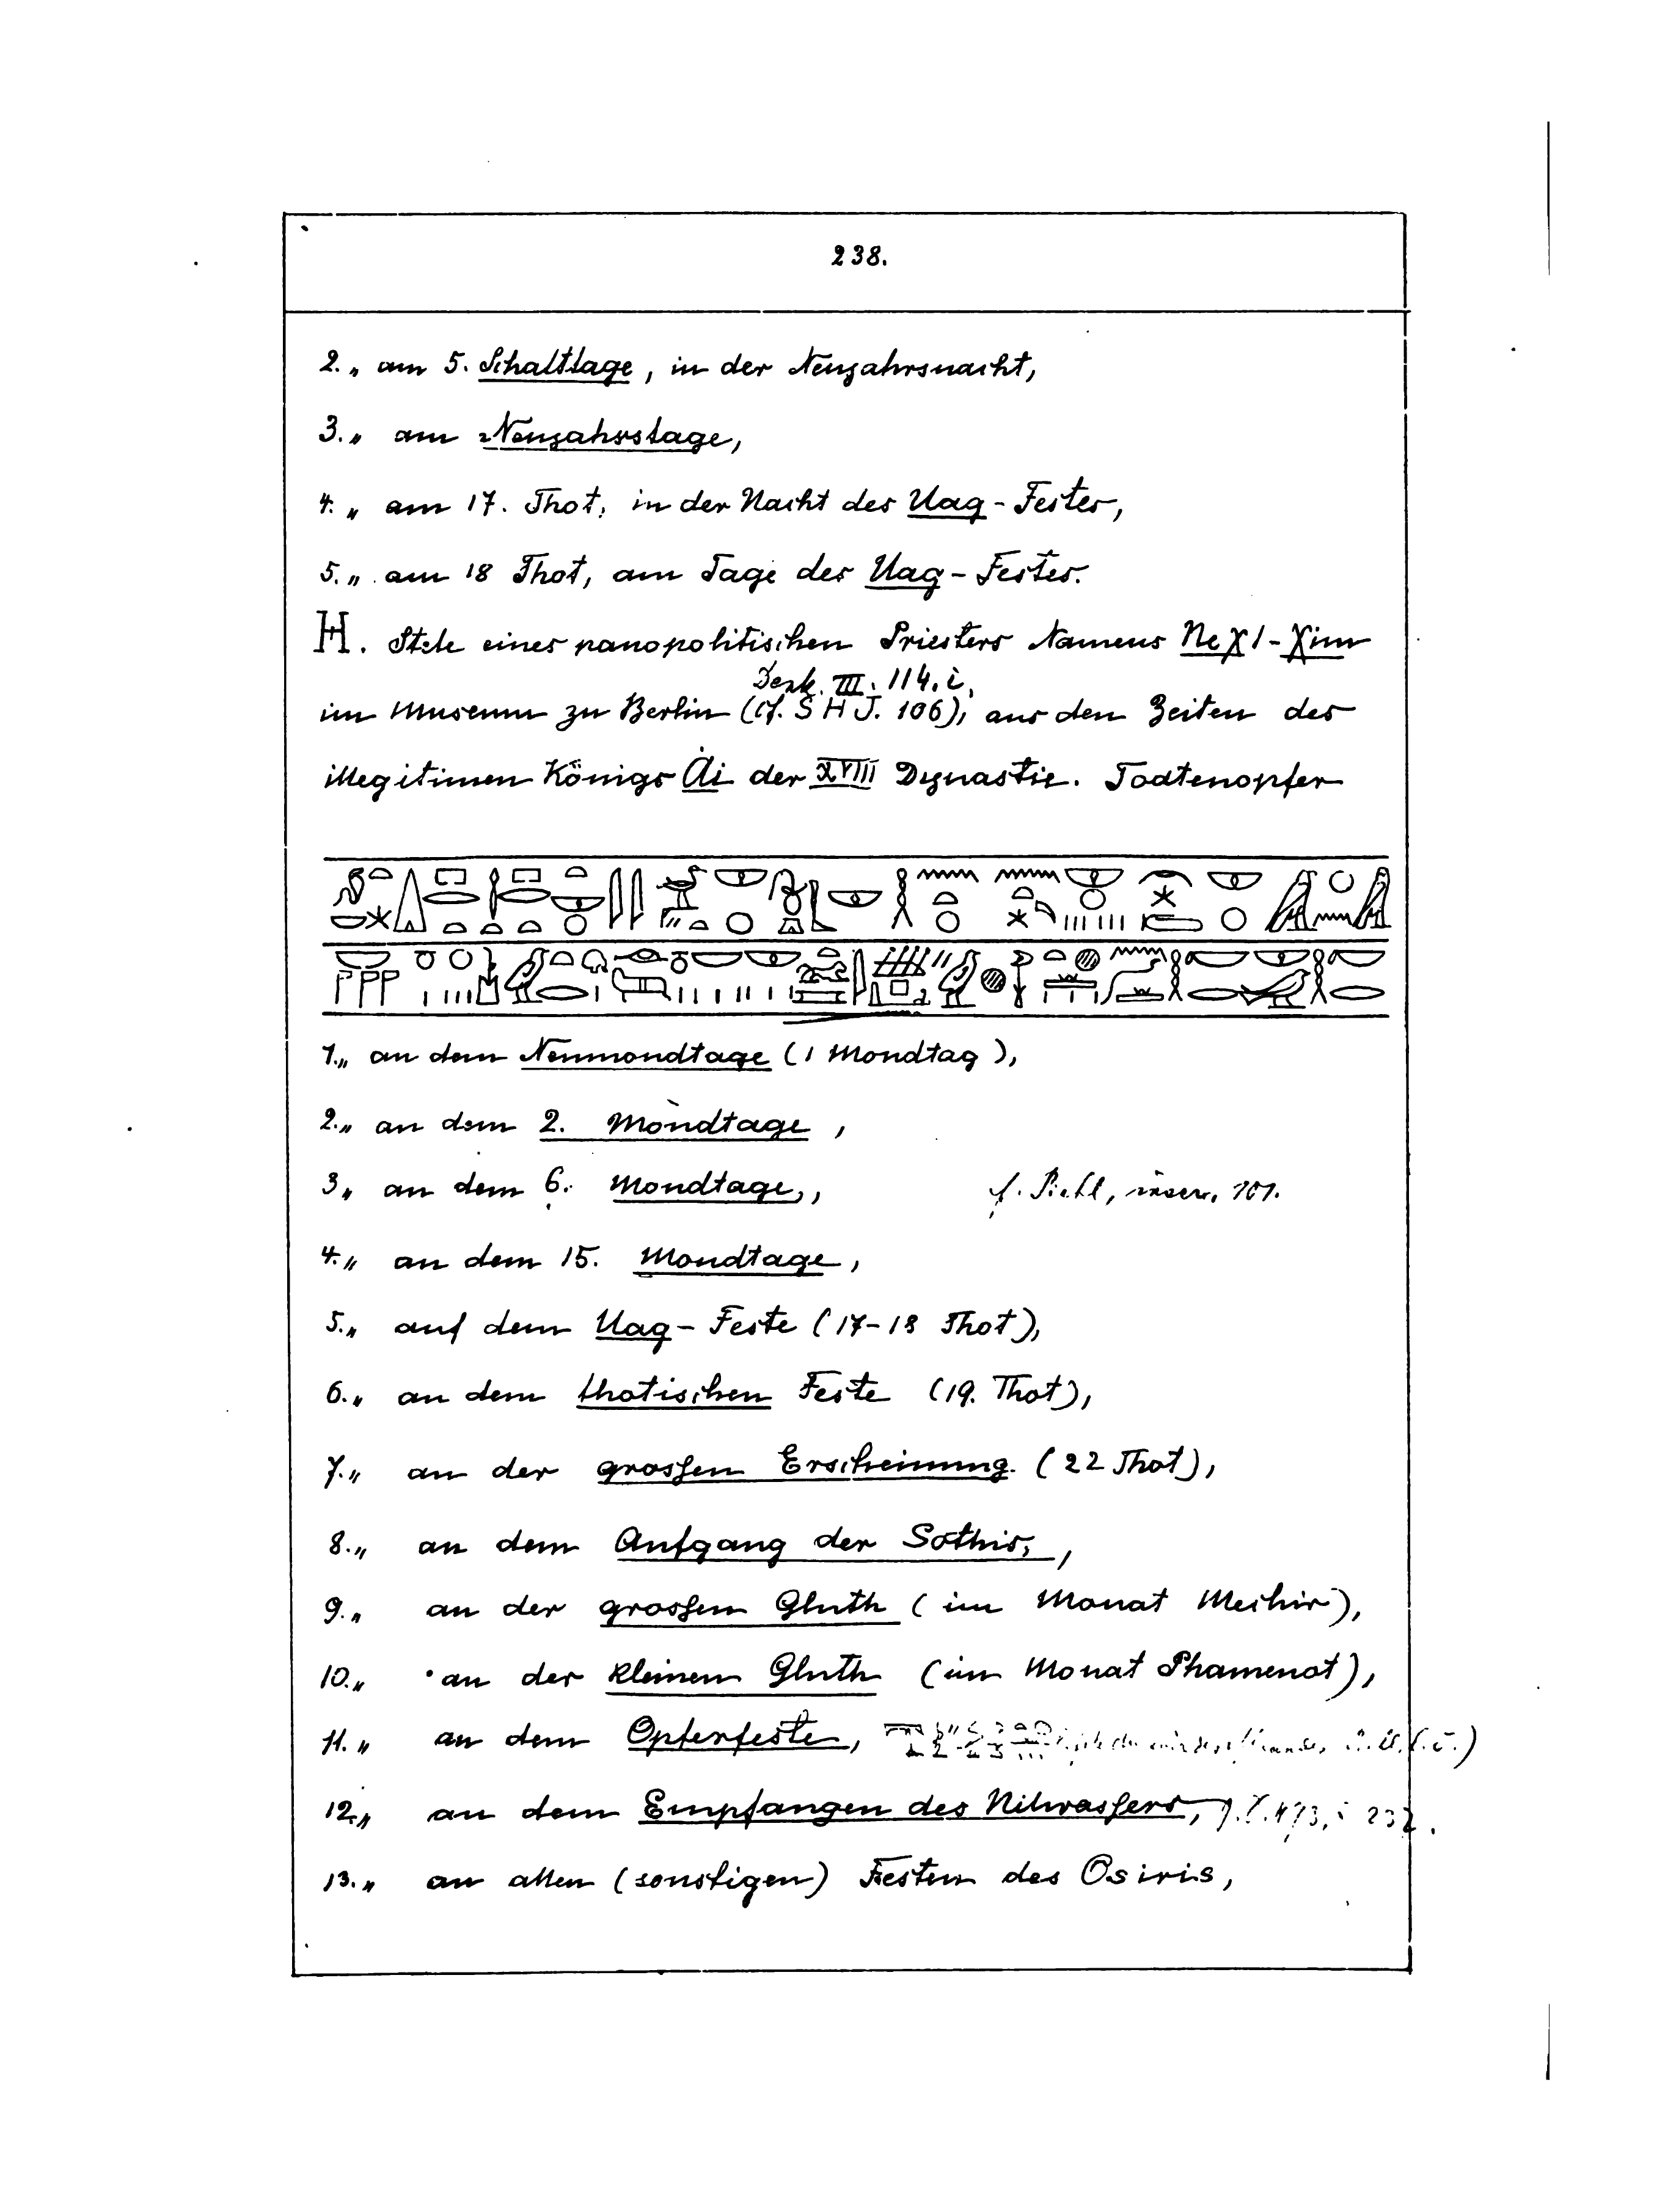 238.
2.„ am 5. Schalttage, in der Neujahrsnacht,
3.„ am Neujahrstage,
4.„ am 17. Thot, in der Nacht des Uag-Festes,
5.„ am 18 Thot, am Tage des Uag-Festes.
H. Stele eines panopolitischen Priesters Namens Neχt-χim
Denk. III. 114. i.
im Museum zu Berlin (cf. S H J. 106), aus den Zeiten des
illegitimen Königs Ai der XVIII Dynastie. Todtenopfer
1.„ an dem Neumondtage (1 Mondtag),
2.„ an dem 2. Mondtage,
3„ an dem 6. Mondtage,, f. Piehl, inscr. 101.
4.„ an dem 15. Mondtage,
5.„ auf dem Uag-Feste (17-18 Thot),
6.„ an dem thotischen Feste (19. Thot),
7.„ an der grossen Erscheinung (22 Thot),
8.„ an dem Aufgang der Sothis,,
9.„ an der grossen Gluth (im Monat Mechir),
10.„ an der kleinen Gluth (im Monat Phamenot),
11.„ an dem Opferfeste,
12.„ an dem Empfangen des Nilwassers,
13.„ an allen (sonstigen) Festen des Osiris,